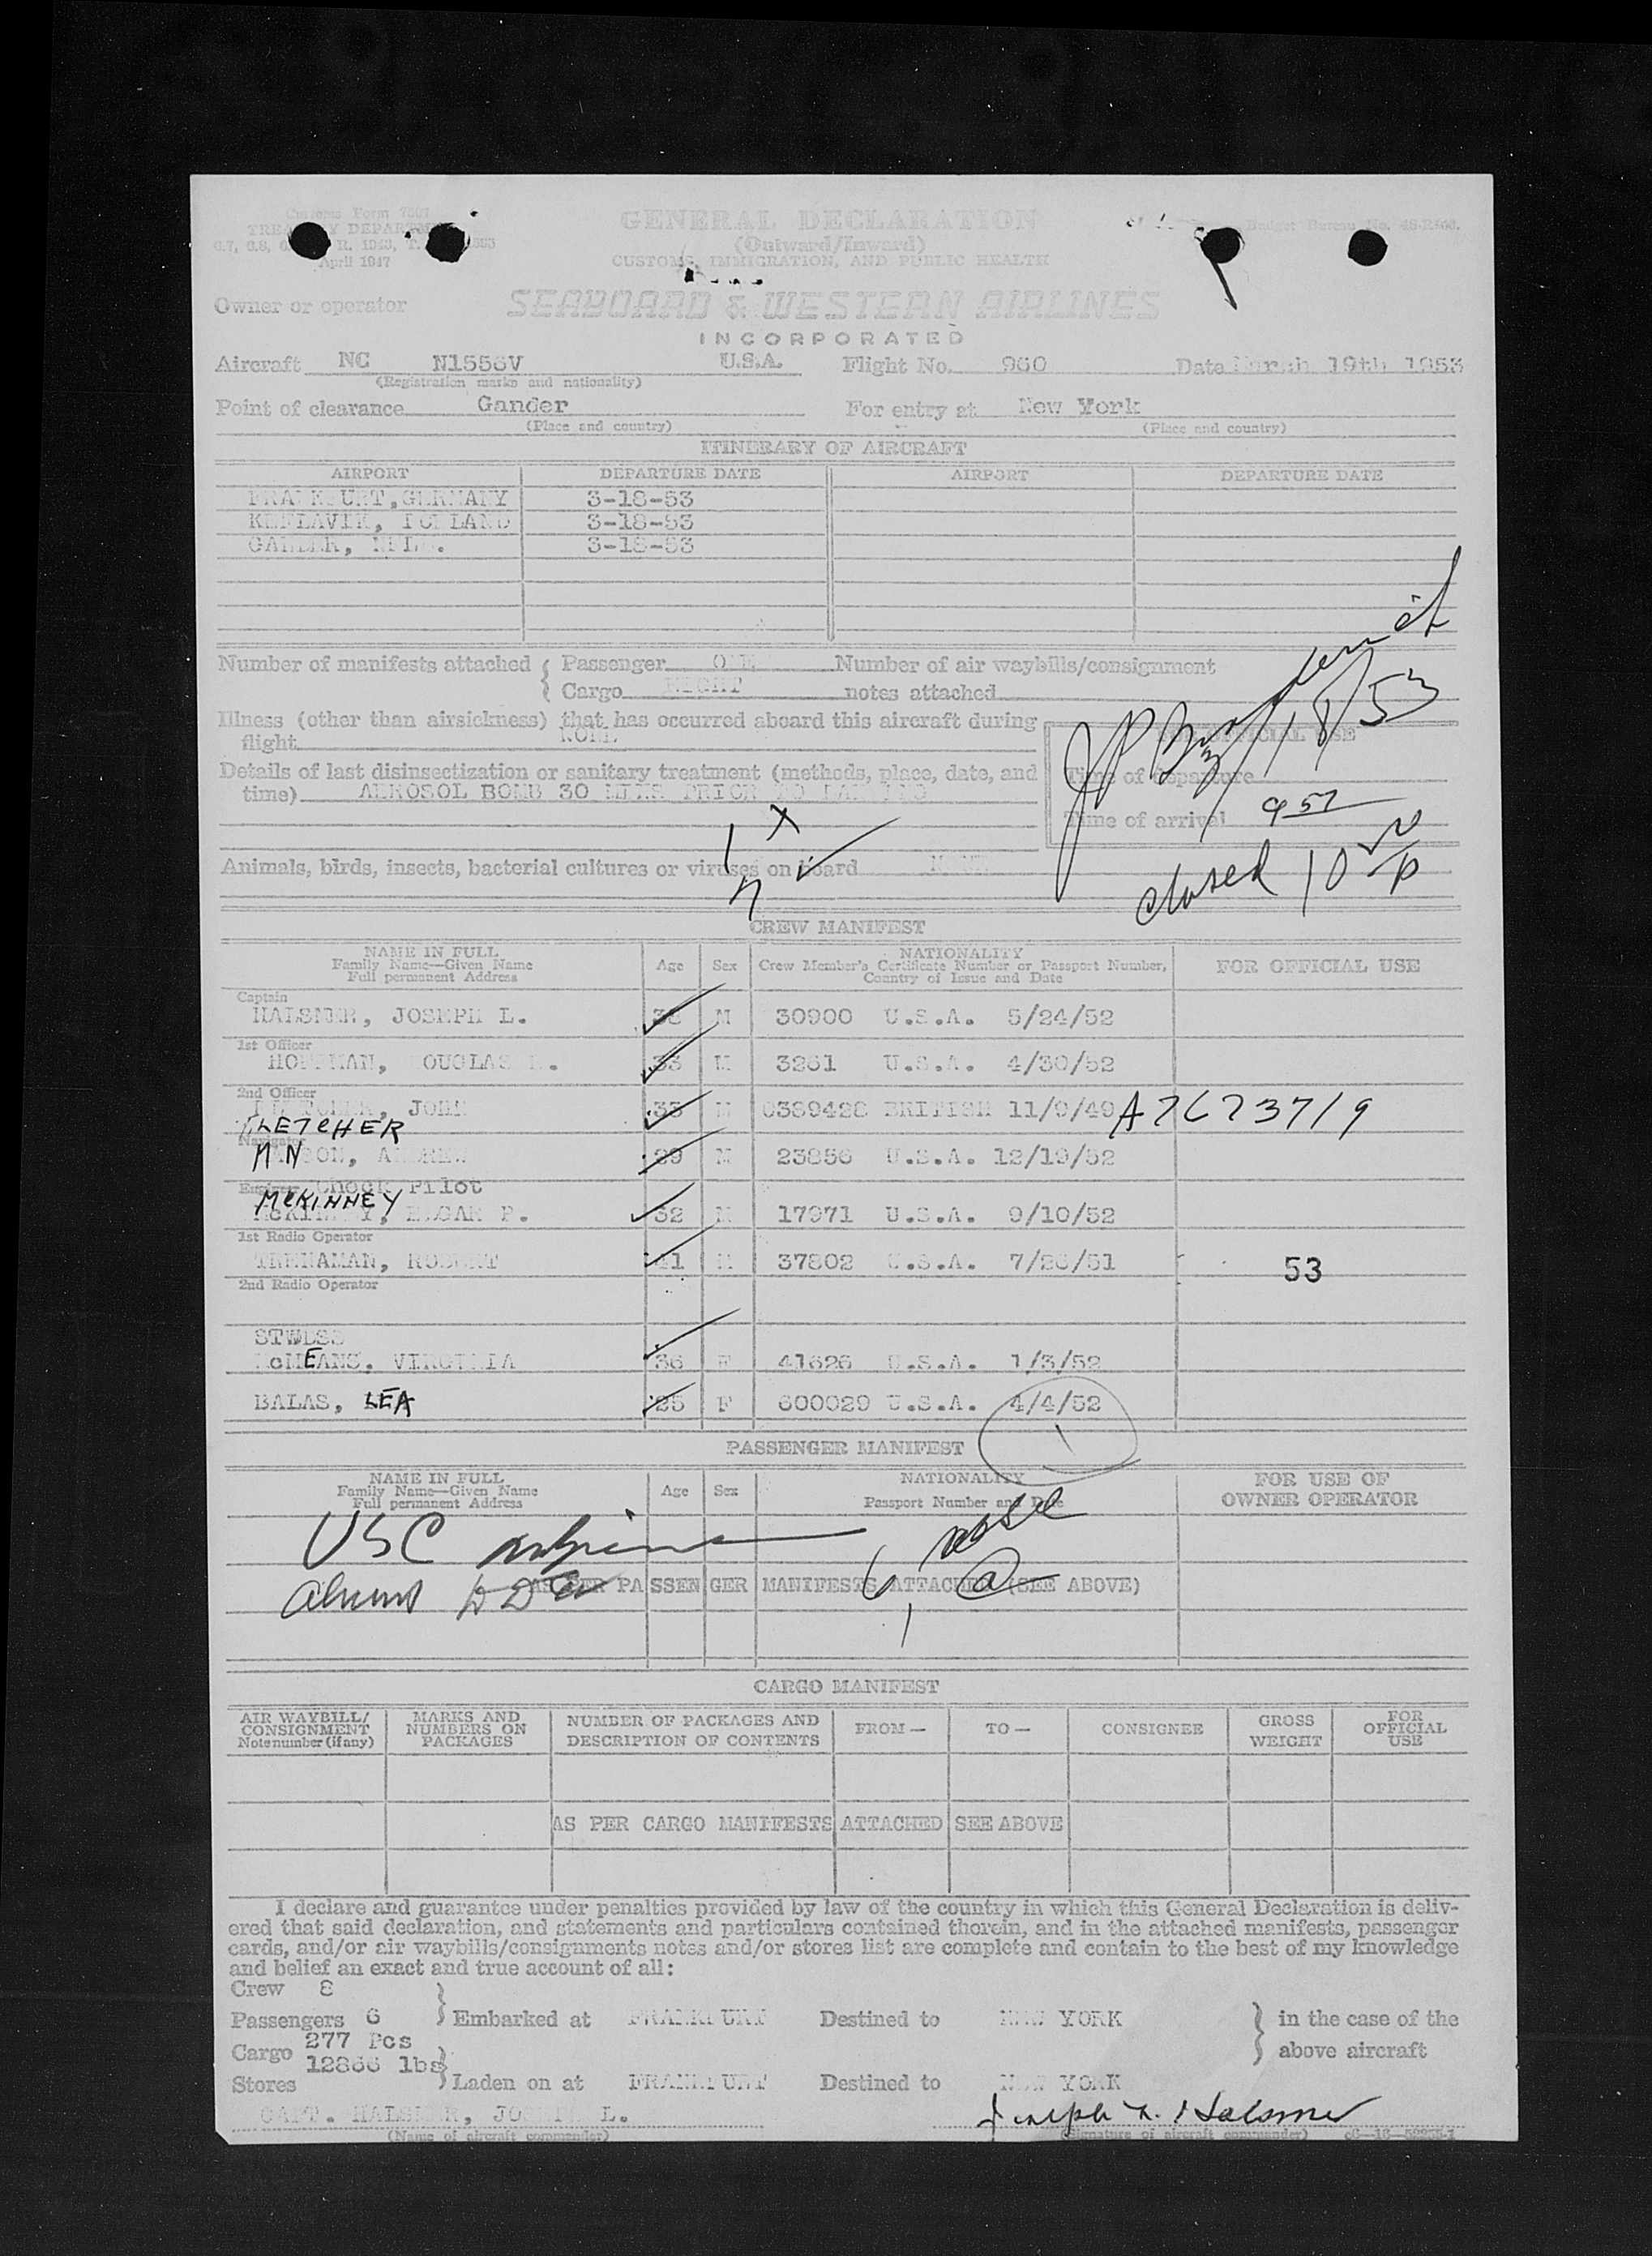 Customs Form 7507
TREASURY DEPARTMENT
April 1947
GENERAL DECLARATION
(Outward/Inward)
CUSTOMS, IMMIGRATION, AND PUBLIC HEALTH
Budget Bureau No.
Owner or operator SEABOARD & WESTERN AIRLINES
INCORPORATED
Aircraft NC N1556V U.S.A. Flight No. 960 Date March 19th 1953
(Registration marks and nationality)
Point of clearance Gander For entry at New York
(Place and country) (Place and country)
ITINERARY OF AIRCRAFT
AIRPORT DEPARTURE DATE AIRPORT DEPARTURE DATE
FRANKFURT, GERMANY 3-18-53
KEFLAVIK, ICELAND 3-18-53
GANDER, NFLD. 3-18-53
Number of manifests attached { Passenger ONE Number of air waybills/consignment
Cargo EIGHT notes attached
Illness (other than airsickness) that has occurred aboard this aircraft during
flight NONE
FOR OFFICIAL USE
3/18/53
Details of last disinsectization or sanitary treatment (methods, place, date, and
time) AEROSOL BOMB 30 MINS PRIOR TO LANDING
Time of departure
Time of arrival 957
closed 10
Animals, birds, insects, bacterial cultures or viruses on board NONE
CREW MANIFEST
NAME IN FULL
Family Name—Given Name
Full permanent Address
Age Sex
NATIONALITY
Crew Member's Certificate Number or Passport Number,
Country of Issue and Date
FOR OFFICIAL USE
Captain
HALSMER, JOSEPH L. M 30900 U.S.A. 5/24/52
1st Officer
HOFFMAN, DOUGLAS 33 M 3261 U.S.A. 4/30/52
2nd Officer
JOHN 35 M 0389428 BRITISH 11/9/49 A7673719
FLETCHER
Navigator
ANDREW 29 M 23856 U.S.A. 12/19/52
Engineer Check Pilot
McKINNEY
McKINNEY, EDGAR P. 32 M 17971 U.S.A. 9/10/52
1st Radio Operator
TRENAMAN, ROBERT 41 M 37802 U.S.A. 7/26/51 53
2nd Radio Operator
STWDSS
McMEANS, VIRGINIA 36 F 41626 U.S.A. 1/3/52
BALAS, LEA 25 F 600029 U.S.A. 4/4/52
1
PASSENGER MANIFEST
NAME IN FULL
Family Name—Given Name
Full permanent Address
Age Sex
NATIONALITY
Passport Number and Date
FOR USE OF
OWNER OPERATOR
USC 6
AS PER PASSENGER MANIFESTS ATTACHED (SEE ABOVE)
1
CARGO MANIFEST
AIR WAYBILL/
CONSIGNMENT
Note number (if any)
MARKS AND
NUMBERS ON
PACKAGES
NUMBER OF PACKAGES AND
DESCRIPTION OF CONTENTS
FROM— TO— CONSIGNEE
GROSS
WEIGHT
FOR
OFFICIAL
USE
AS PER CARGO MANIFESTS ATTACHED SEE ABOVE
I declare and guarantee under penalties provided by law of the country in which this General Declaration is deliv-
ered that said declaration, and statements and particulars contained therein, and in the attached manifests, passenger
cards, and/or air waybills/consignments notes and/or stores list are complete and contain to the best of my knowledge
and belief an exact and true account of all:
Crew 8
Passengers 6 } Embarked at FRANKFURT Destined to NEW YORK } in the case of the
Cargo 277 Pcs
12866 lbs above aircraft
Stores } Laden on at FRANKFURT Destined to NEW YORK
CAPT. HALSMER, JOSEPH L. Joseph L. Halsmer
(Name of aircraft commander) (Signature of aircraft commander)